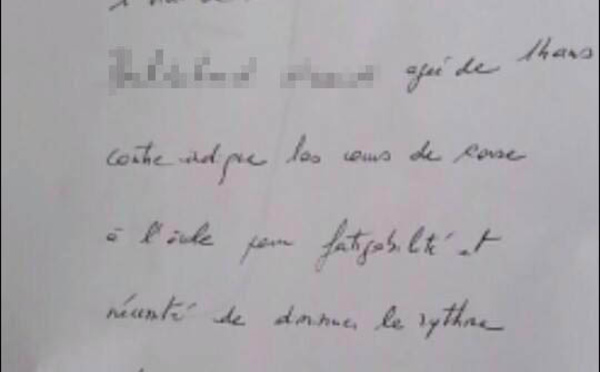 agée de 14 ans
contre indique les cours de
à l'école pour fatigabilité et
nécessité de diminuer le rythme